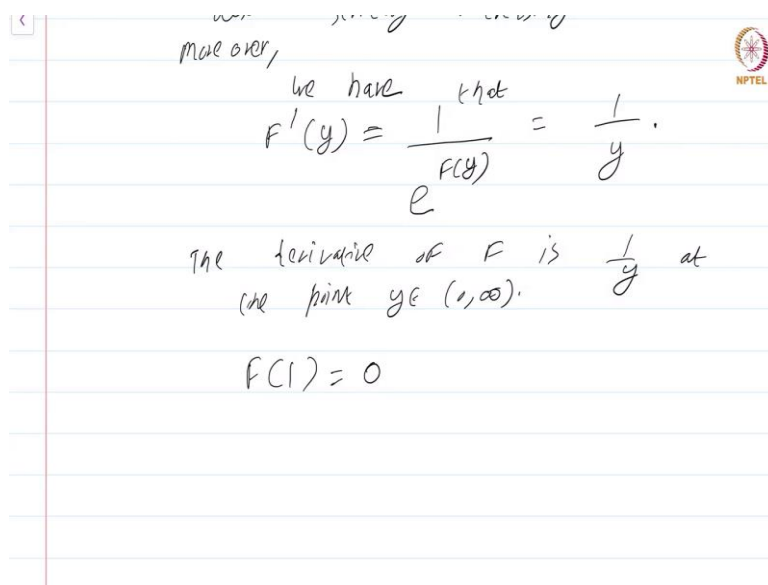 more over,
NPTEL
we have that
F'(y) = 1/e^F(y) = 1/y.
The derivative of F is 1/y at
the point y∈ (0,∞).
F(1) = 0